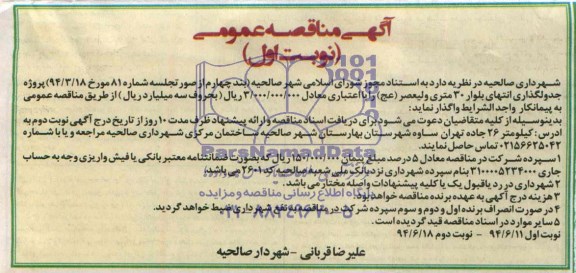 آگهی مناقصه عمومی
(نوبت اول)
شهرداری صالحیه در نظریه دارد به استناد مجوز شورای اسلامی شهر صالحیه (بند چهارم از صور تجلسه شماره ۸۱ مورخ ۹۴/۳/۱۸) پروژه
جدولگذاری انتهای بلوار ۳۰ متری ولیعصر (عج) را با اعتباری معادل ۳/۰۰۰/۰۰۰/۰۰۰ ریال (بحروف سه میلیارد ریال) از طریق مناقصه عمومی
به پیمانکار واجد الشرایط واگذار نماید:
بدینوسیله از کلیه متقاضیان دعوت می شود برای دریافت اسناد مناقصه و ارائه پیشنهاد ظرف مدت ۱۰ روز از تاریخ درج آگهی نوبت دوم به
ادرس: کیلومتر ۲۶ جاده تهران ساوه شهرستان بهارستان شهر صالحیه ساختمان مرکزی شهرداری صالحیه مراجعه و یا با شماره
۰۲۱۵۶۶۲۵۰۴۲ تماس حاصل نمایند.
۱ سپرده شرکت در مناقصه معادل ۵ درصد مبلغ پیمان ۱۵۰/۰۰۰/۰۰۰ ریال که بصورت ضمانتنامه معتبر بانکی یا فیش واریزی وجه به حساب
جاری ۳۱۰۰۰۵۲۳۴۰۰۰ بنام سپرده شهرداری نزد بانک ملی شعبه صالحیه کد ۲۶۰۱ می باشد)
۲ شهرداری در رد یا قبول یک یا کلیه پیشنهادات واصله مختار می باشد.
۳ هزینه درج آگهی به عهده برنده مناقصه خواهد بود.
۴ در صورت انصراف برنده اول و دوم و سوم سپرده شرکت در مناقصه به نفع شهرداری ضبط خواهد گردید.
۵ سایر موارد در اسناد مناقصه قید گردیده است.
نوبت اول ۹۴/۶/۱۱ - نوبت دوم ۹۴/۶/۱۸
علیرضا قربانی - شهردار صالحیه
ParsNamadData
پایگاه اطلاع رسانی مناقصه و مزایده